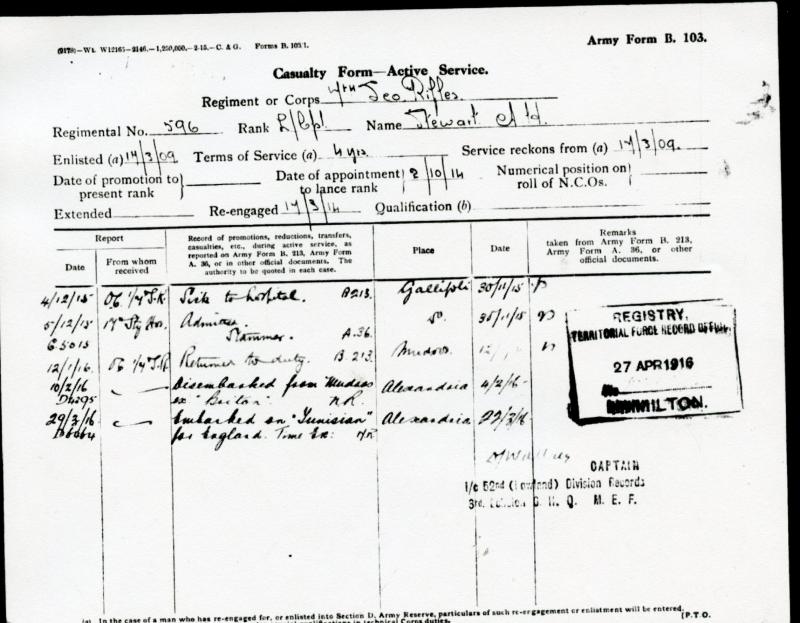 (9178)—Wt. W12165—2146.—1,250,000.—2-15.—C. & G. Forms B. 103/1.
Army Form B. 103.
Casualty Form—Active Service.
Regiment or Corps 4th Sco Rifles.
Regimental No. 596 Rank L/Cpl Name Stewart
Enlisted (a) 17/3/09 Terms of Service (a) 4 yrs. Service reckons from (a) 17/3/09.
Date of promotion to present rank Date of appointment to lance rank 2/10/14 Numerical position on roll of N.C.Os.
Extended Re-engaged 17/3/14 Qualification (b)
Report
Date From whom received
Record of promotions, reductions, transfers, casualties, etc., during active service, as reported on Army Form B. 213, Army Form A. 36, or in other official documents. The authority to be quoted in each case.
Place
Date
Remarks taken from Army Form B. 213, Army Form A. 36, or other official documents.
4/12/15 Sick to hospital. B213. Gallipoli 30/11/15
5/12/15 17th Sty Hos. Admitted Do. 30/11/15
A.36.
12/1/16. Returned to duty. B.213. Mudros
10/2/16 Disembarked from Mudros Alexandria 4/2/16
ex "Briton" N.R.
29/3/16 Embarked on "Tunisian" Alexandria 29/3/16
for England. Time Ex:
REGISTRY,
TERRITORIAL FORCE RECORD OFFICE,
27 APR 1916
No
HAMILTON.
CAPTAIN
i/c 52nd (Lowland) Division Records
3rd. Echelon G. H. Q. M. E. F.
(a) In the case of a man who has re-engaged for, or enlisted into Section D, Army Reserve, particulars of such re-engagement or enlistment will be entered.
(P.T.O.